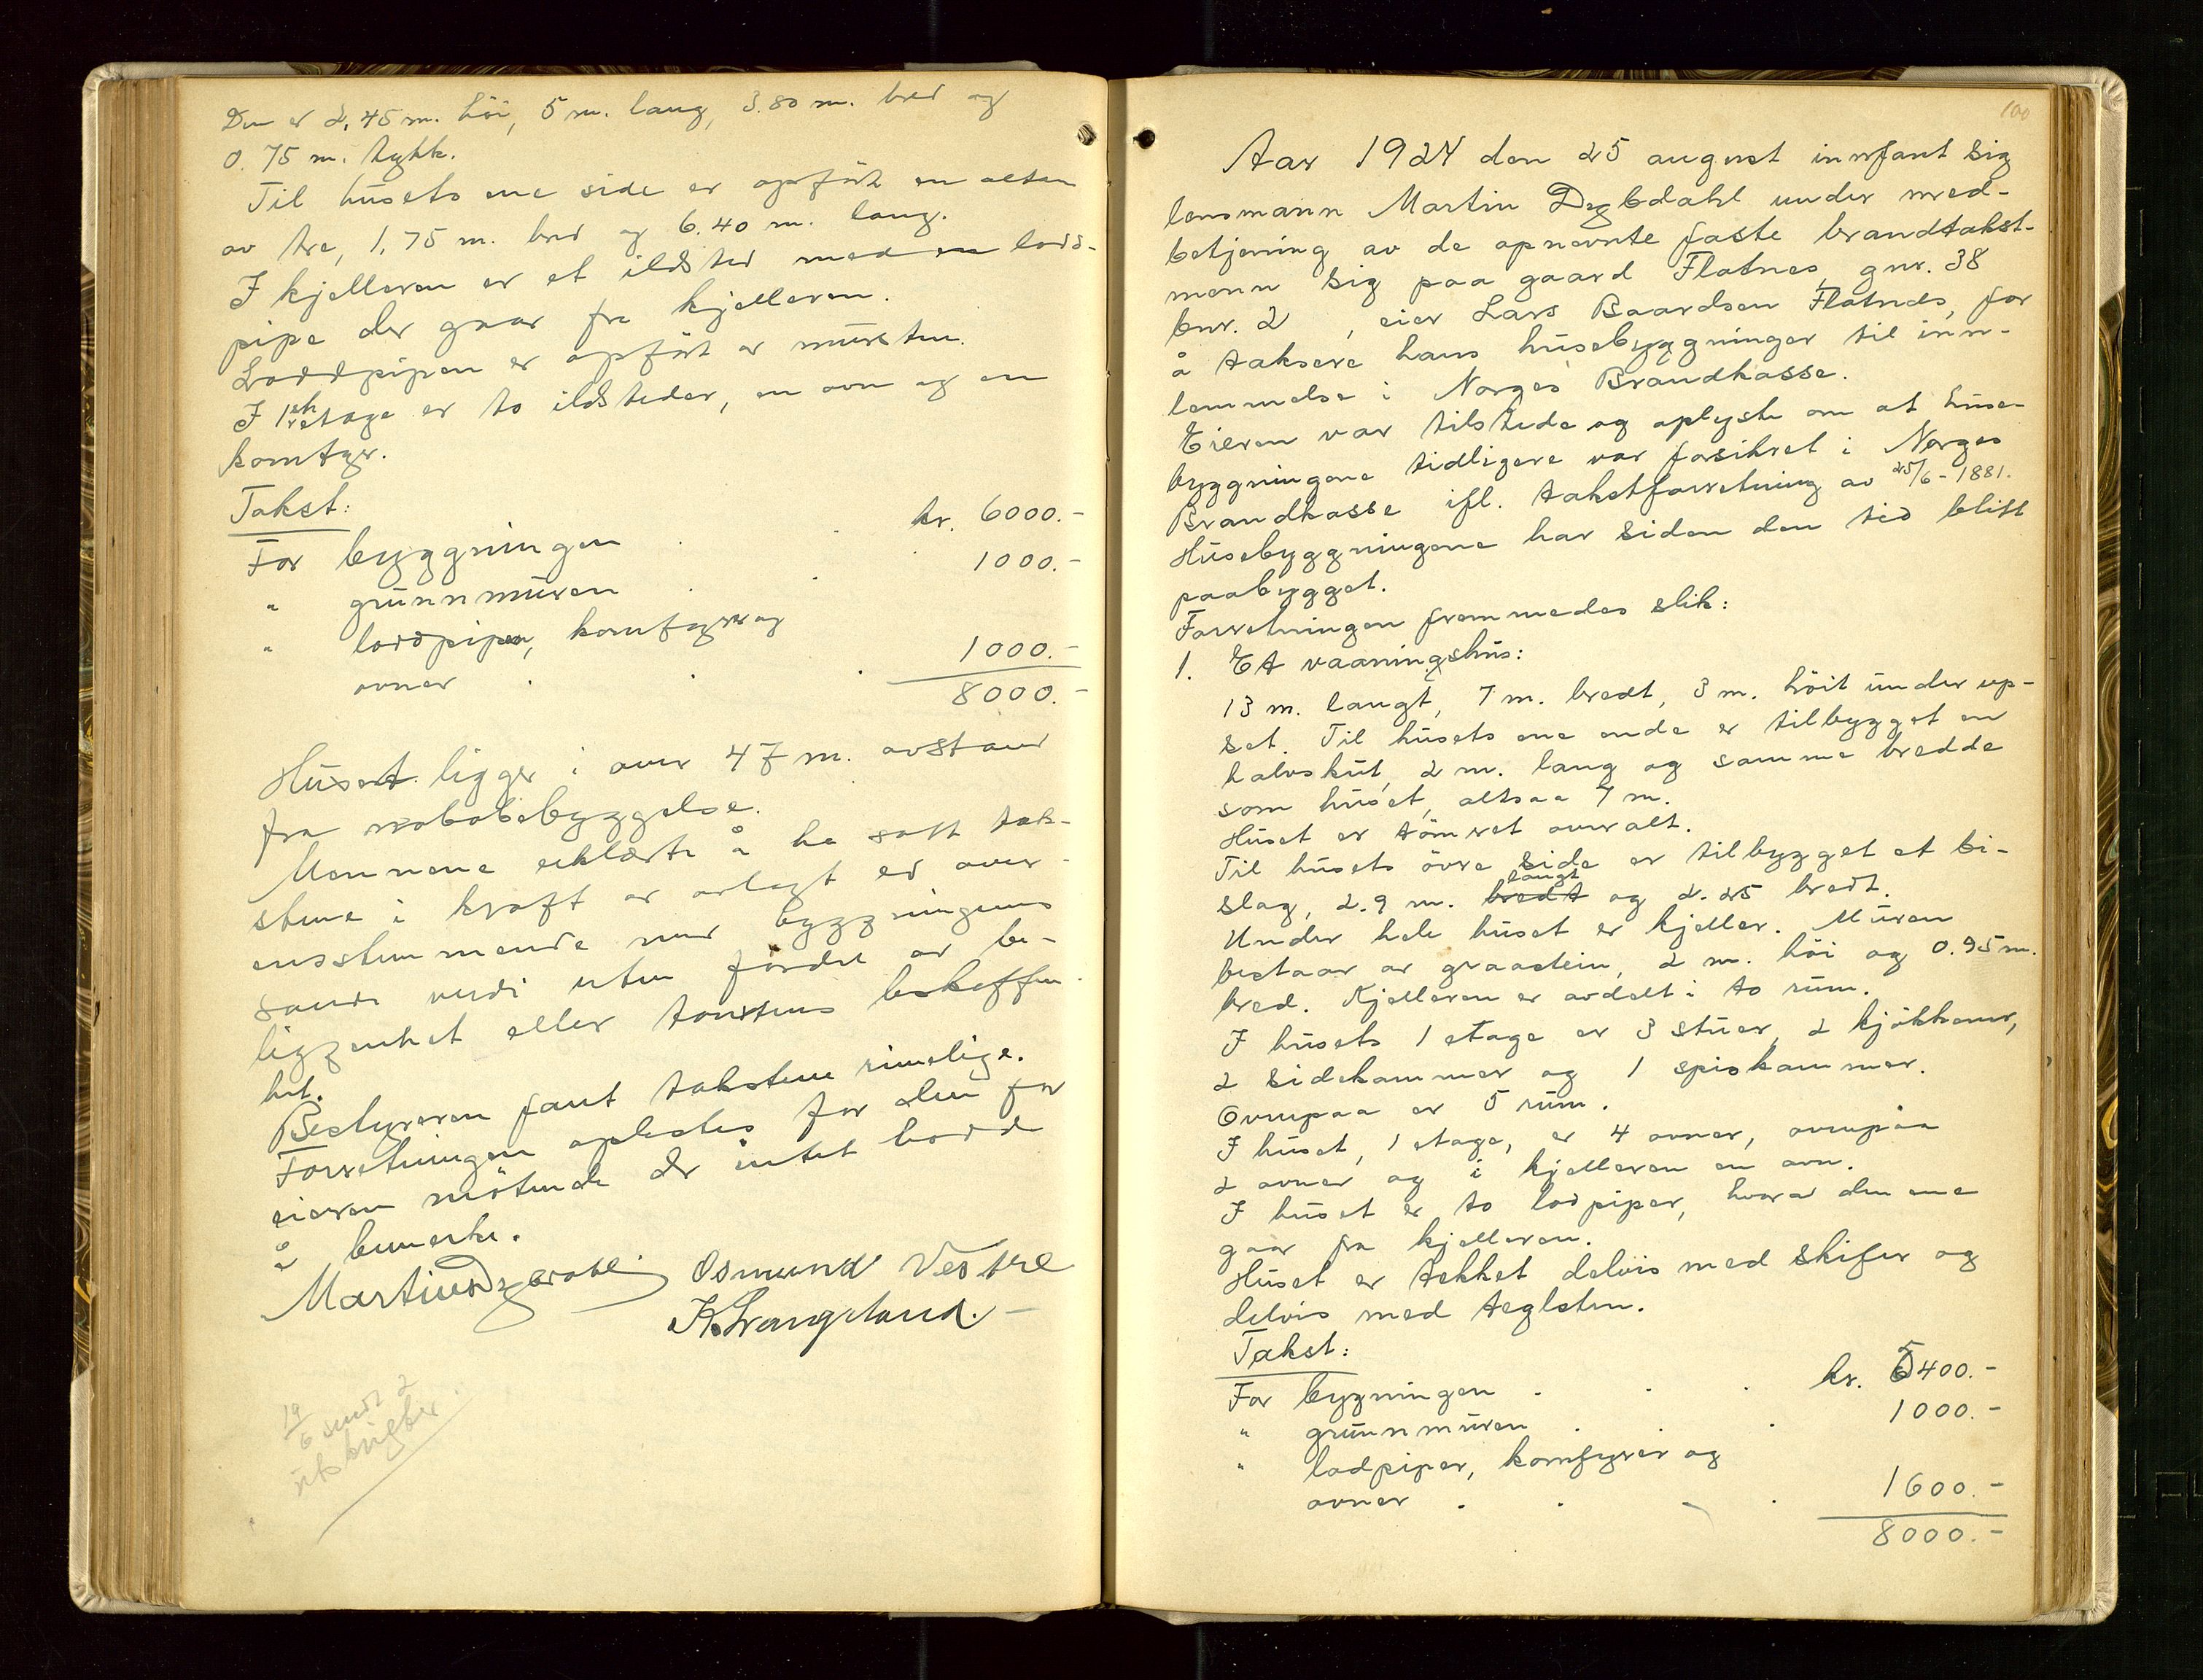 Den er 2,45 m. höi, 5 m. lang, 3.80 m. bred og
0.75 m. tykk.
Til husets ene side er opfört en altan
av tre, 1,75 m. bred og 6.40 m. lang.
I kjelleren er et ildsted med en lodd-
pipe der gaar fra kjelleren.
Loddpipen er opfört av mursten.
I 1ste etage er to ildsteder, en ovn og en
komfyr.
Takst:
For byggningen . . kr. 6000.-
" grunnmuren . . 1000.-
" loddpipen, komfyrer og
ovner . . . 1000.-
8000.-
Huset ligger i over 47 m. avstand
fra nabobebyggelse.
Mennene erklærte å ha satt tak-
stene i kraft av avlagt ed over-
ensstemmende med byggningens
sande verdi uten fordel av be-
liggenhet eller tomtens beskaffen-
het.
Bestyreren fant takstene rimelige.
Forretningen oplestes for den for
eieren mötende der intet hadde
å bemerke.
Martin Degbdahl Osmund Vestre
K. Lrangeland.-
19/6 sendt 2
utskrifter
100
Aar 1924 den 25 august innfant sig
lensmann Martin Degbdahl under med-
betjening av de opnevnte faste brandtakst-
menn sig paa gaard Flatnes, gnr. 38
bnr. 2, eier Lars Baardsen Flatnes, for
å taksere hans husebyggninger til inn-
lemmelse i Norges Brandkasse.
Eieren var tilstede og oplyste om at huse-
byggningene tidligere var forsikret i Norges
Brandkasse ifl. takstforretning av 25/6-1881.
Husebyggningene har siden den tid blitt
paabygget.
Forretningen fremmedes slik:
1. Et vaaningshus:
13 m. langt, 7 m. bredt, 3 m. höit under op-
set. Til husets ene ende er tilbygget en
halvskut, 2 m. lang og samme bredde
som huset, altsaa 7 m.
Huset er tömret overalt.
Til husets övre side er tilbygget et bi-
slag, 2.9 m. bredt langt og 2.25 bredt.
Under hele huset er kjeller. Muren
bestaar av graastein, 2 m. höi og 0.95 m.
bred. Kjelleren er avdelt i to rum.
I husets 1 etage er 3 stuer, 2 kjökkener,
2 sidekammer og 1 spiskammer.
Ovenpaa er 5 rum.
I huset, 1 etage, er 4 ovner, ovenpaa
2 ovner og i kjelleren en ovn.
I huset er to lodpiper, hvorav den ene
gaar fra kjelleren.
Huset er tekket delvis med skifer og
delvis med teglsten.
Takst:
For bygningen . . . kr. 5400.-
" grunnmuren . . 1000.-
" lodpiper, komfyrer og
ovner . . . 1600.-
8000.-